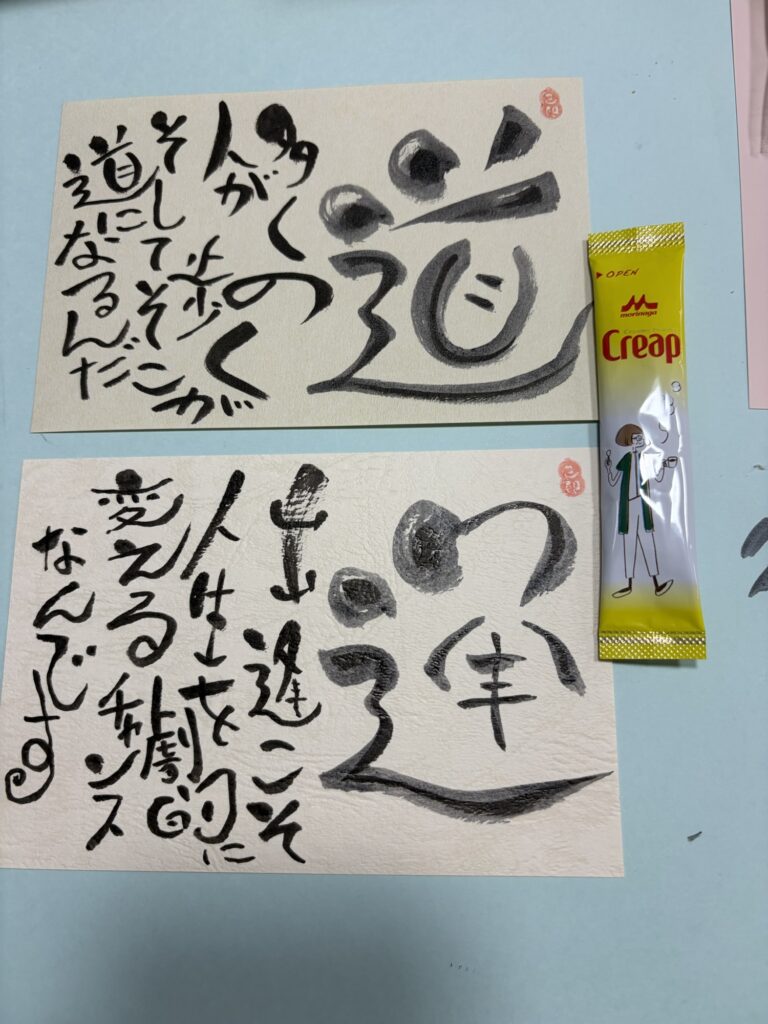 道
多くの
人が歩く
そしてそこが
道になるんだ
逢
出逢こそ
人生を劇的に
変えるチャンス
なんです
OPEN
morinaga
Creap